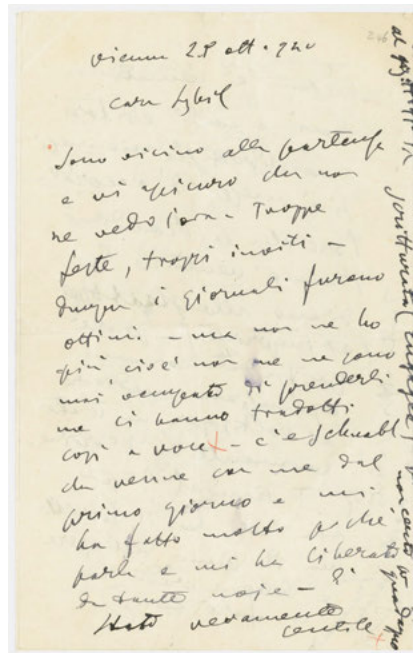 Vienna 28 ott. 920
Cara Sybil
Sono vicino alla partenza
e vi assicuro che non
ne vedo l'ora - Troppe
feste, troppi inviti -
dunque i giornali furono
ottimi - ma non ne ho
più cioè non me ne sono
mai occupato di prenderli
me li hanno tradotti
così a voce - c'è Schnabl
che venne con me dal
primo giorno e mi
ha fatto molto p chè
parla e mi ha liberato
da tante noje - È
stato veramente
gentile